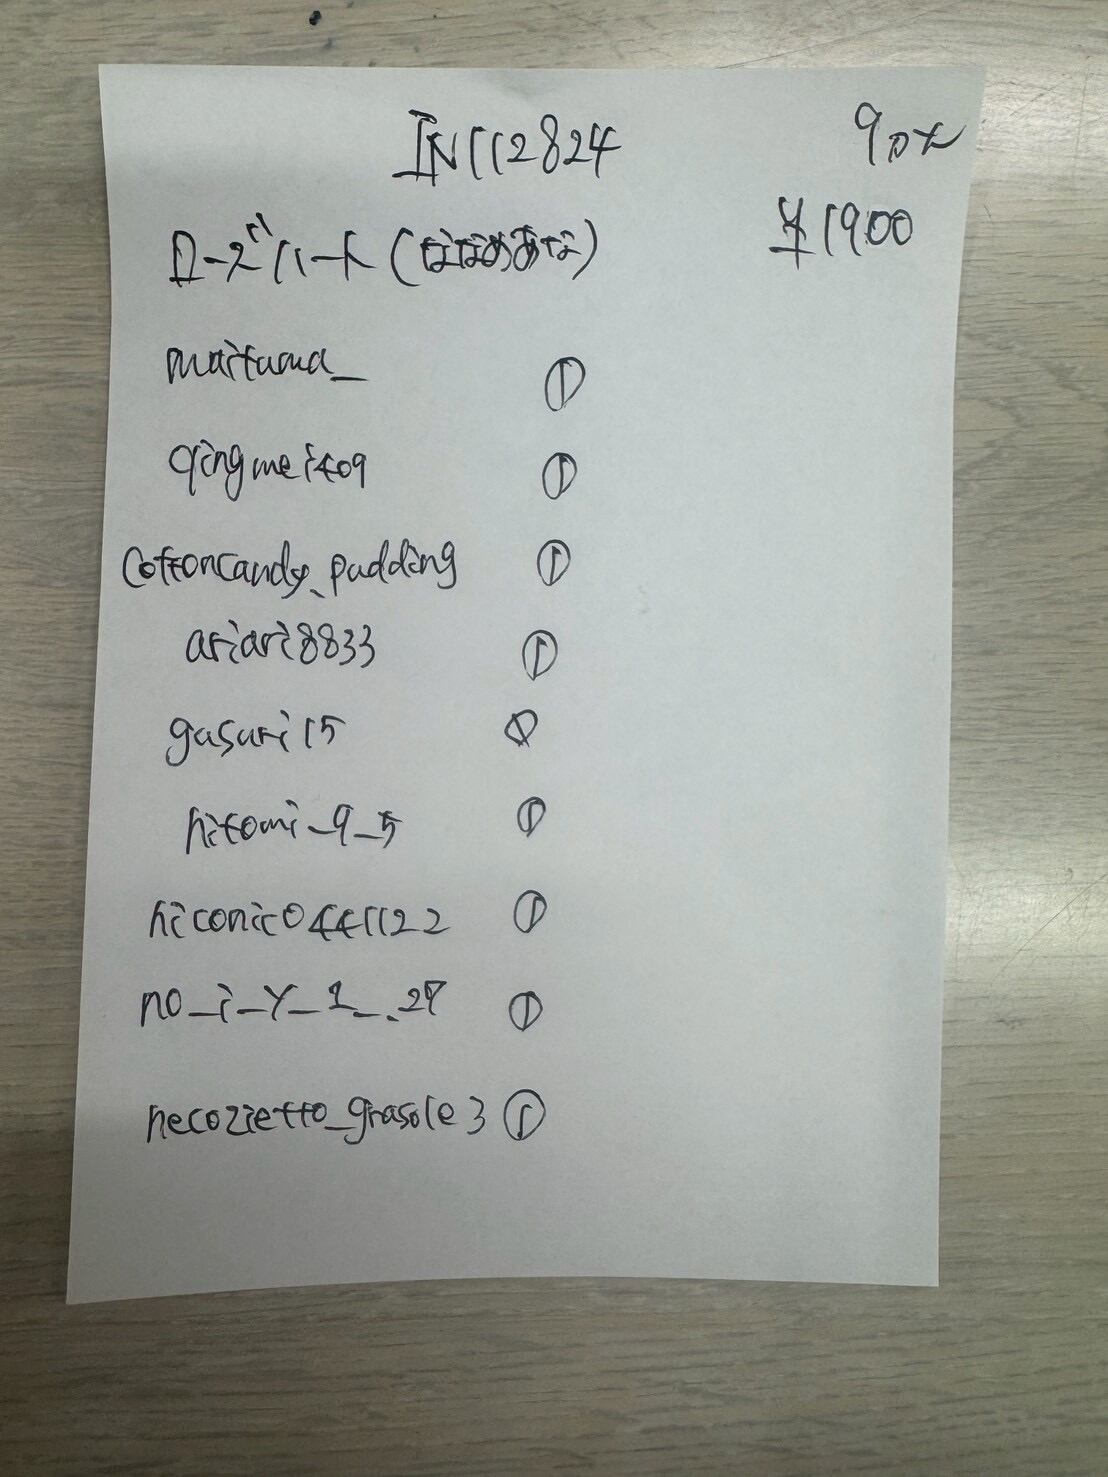 IN112824
9px
ローズハート(ななめあな)
¥1900
maituma_ ①
qingmei409 ①
cottoncandy_pudding ①
ariari8833 ①
gasuri15 ①
hitomi_9_5 ①
hiconico441122 ①
no_i_y_1_.27 ①
necozietto_grasole3 ①